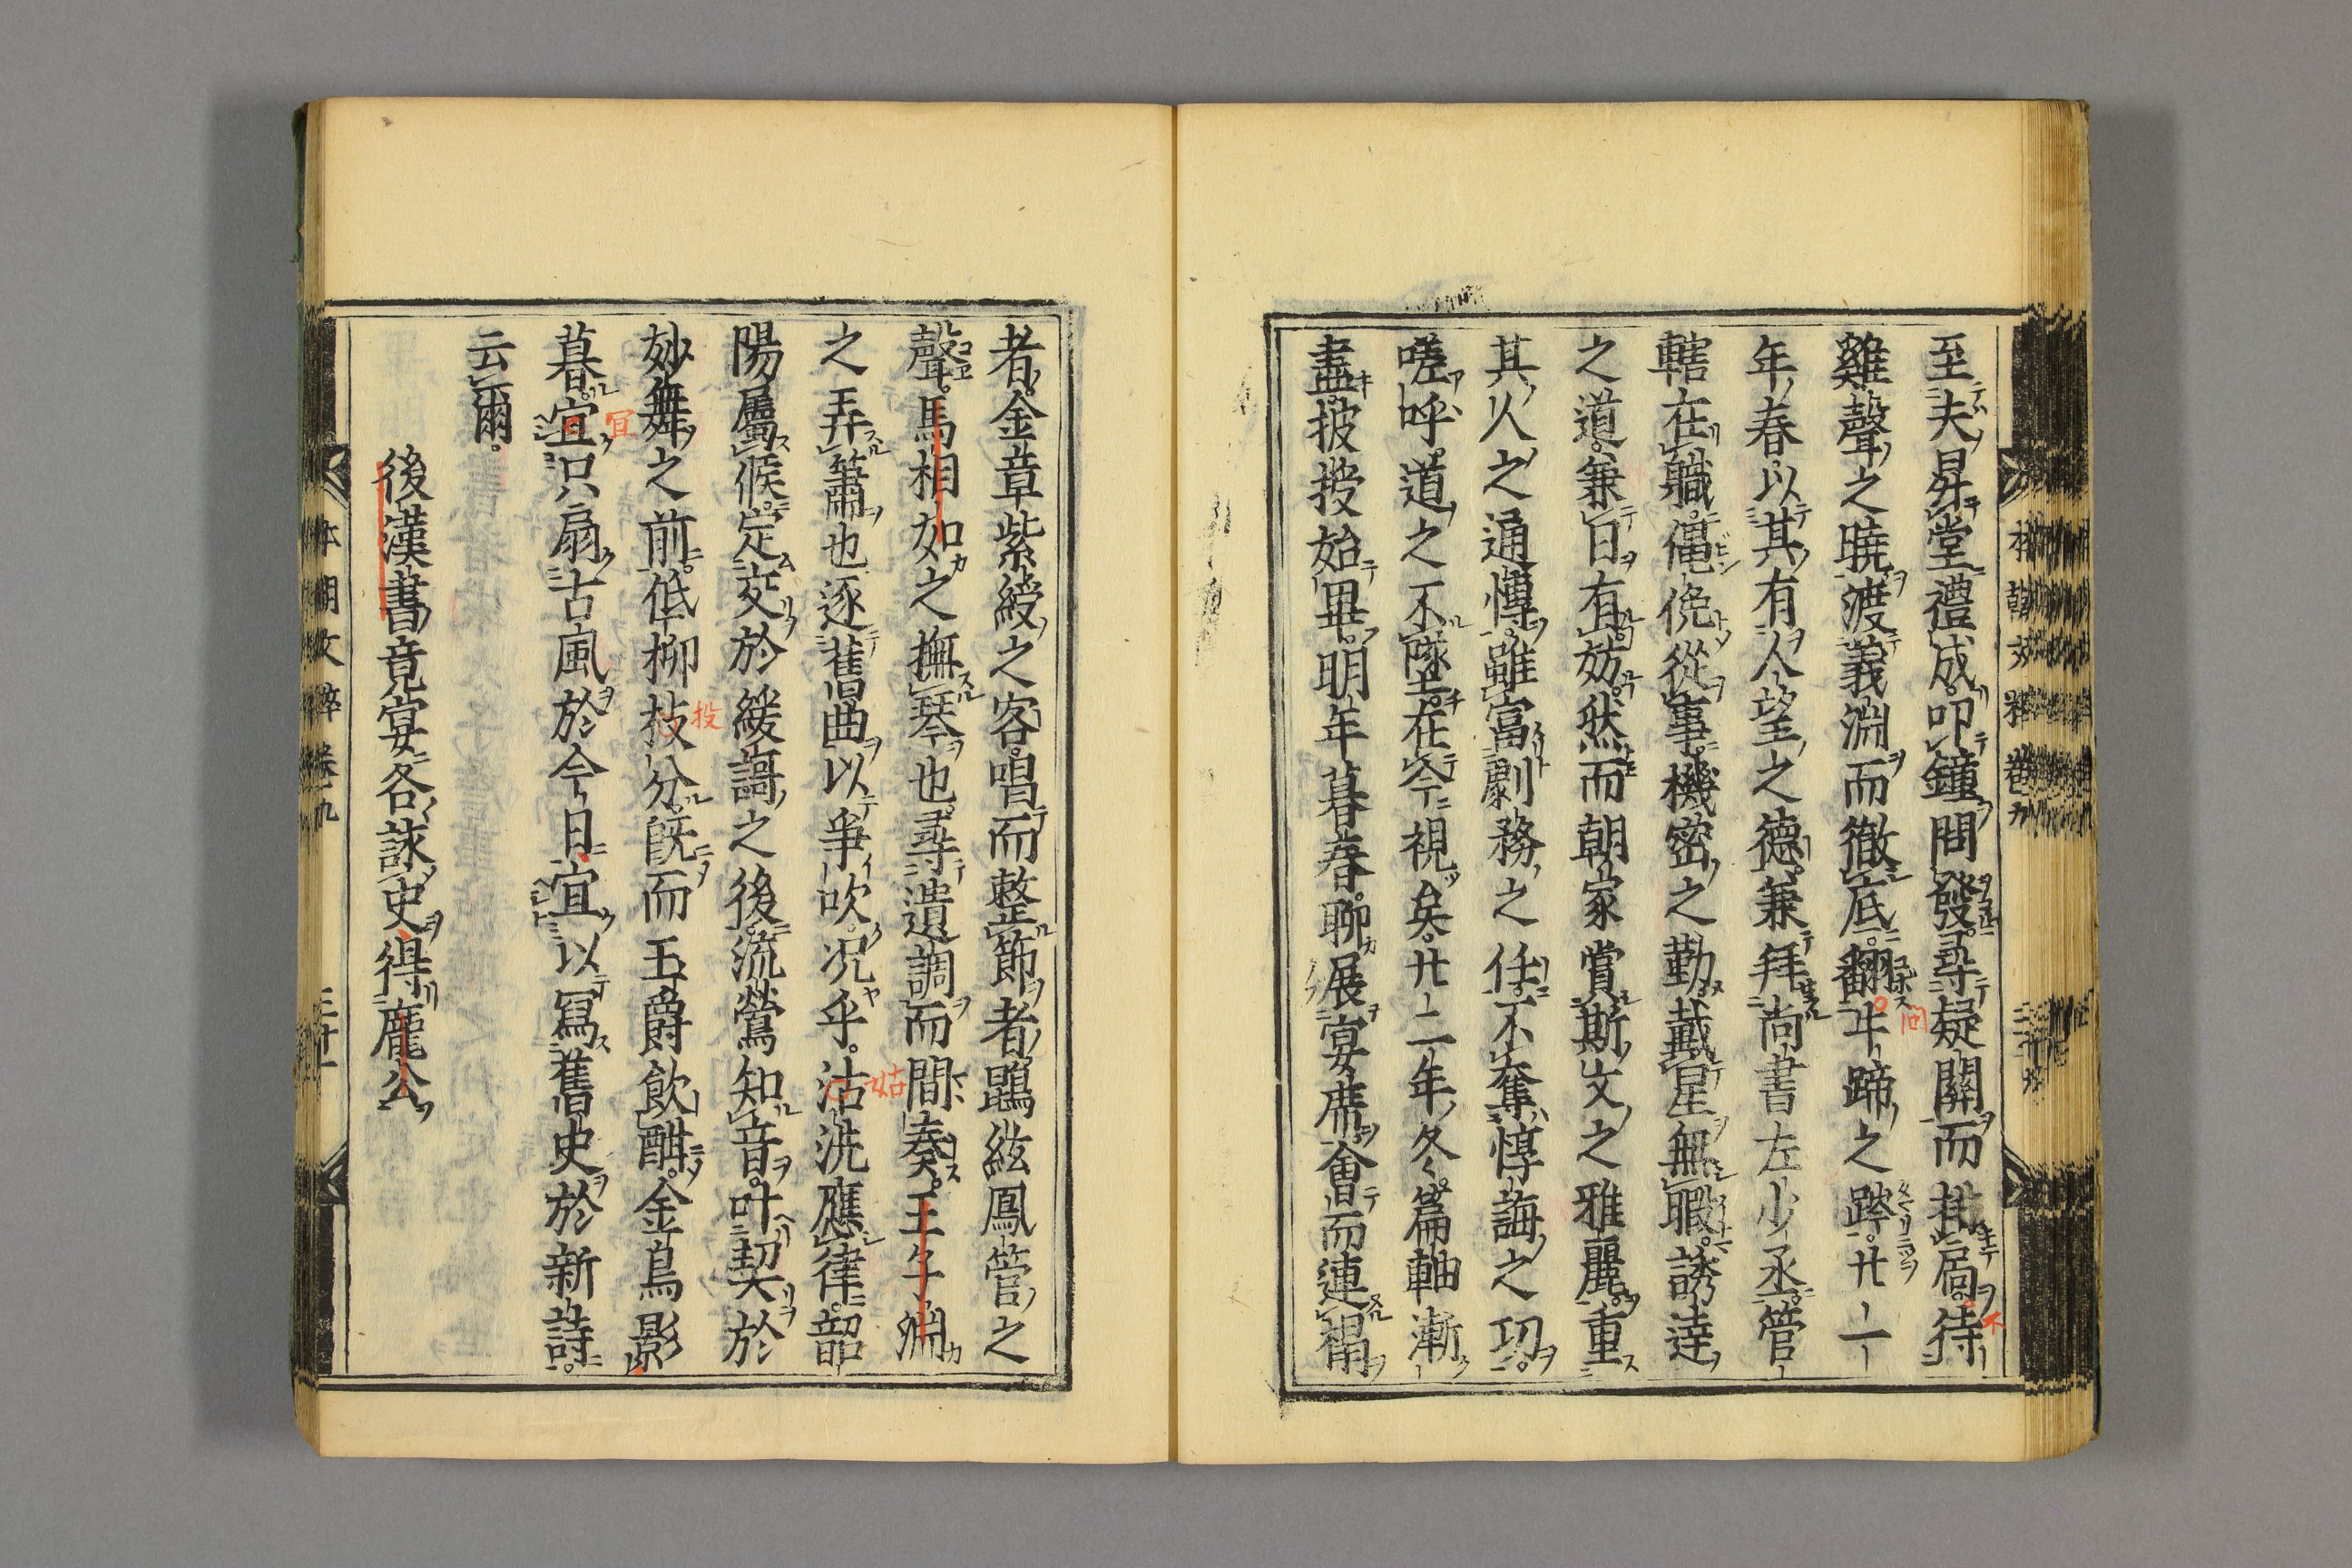 至夫昇堂禮成叩鐘問發尋疑關而排扃待
雞聲之曉渡義淵而徹底翻牛蹄之跨廿一
年春以其有人望之德兼拜尚書左少丞管
轄在職僶俛從事機密之勤戴星無暇誘達
之道兼日有妨然而朝家賞斯文之雅麗重
其人之通博雖富劇務之任不奪惇誨之功
嗟呼道之不墜在今視矣廿二年冬篇軸漸
盡披授始畢明年暮春聊展宴席會而連襟
者金章紫綬之客唱而整節者鵾絃鳳管之
聲馬相如之撫琴也尋遺調而間奏王子淵
之弄簫也逐舊曲以爭吹況乎沽洗應律韶
陽屬候定交於緩謌之後流鶯知音叶契於
妙舞之前低柳技分既而玉爵飲酣金烏影
暮宜只扇古風於今日宜以寫舊史於新詩
云爾
後漢書竟宴各詠史得龐公
本朝文粹卷九
三十一
姑
投
冝
不